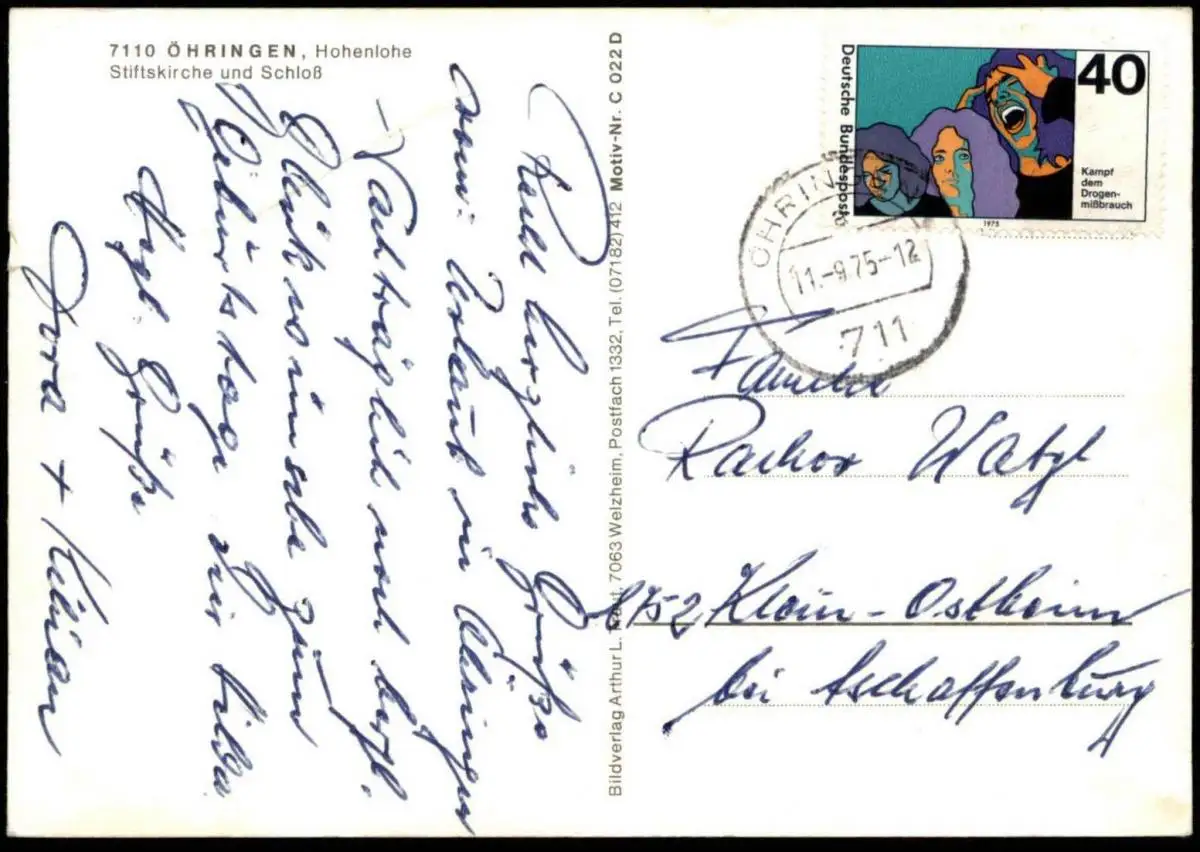 7110 ÖHRINGEN, Hohenlohe
Stiftskirche und Schloß
Recht herzliche Grüße
vom Urlaub in Öhringen
Nachträglich noch herzl.
Glückwünsche zum
Geburtstage
Hrzl. Grüße
Dora + Kilian
Bildverlag Arthur L. 7063 Welzheim, Postfach 1332, Tel. (07182) 412 Motiv-Nr. C 022 D
Deutsche Bundespost
40
Kampf
dem
Drogen-
mißbrauch
1975
ÖHRIN
11.-9.75-12
711
Familie
Rachor
8752 Klein-Ostheim
bei Aschaffenburg